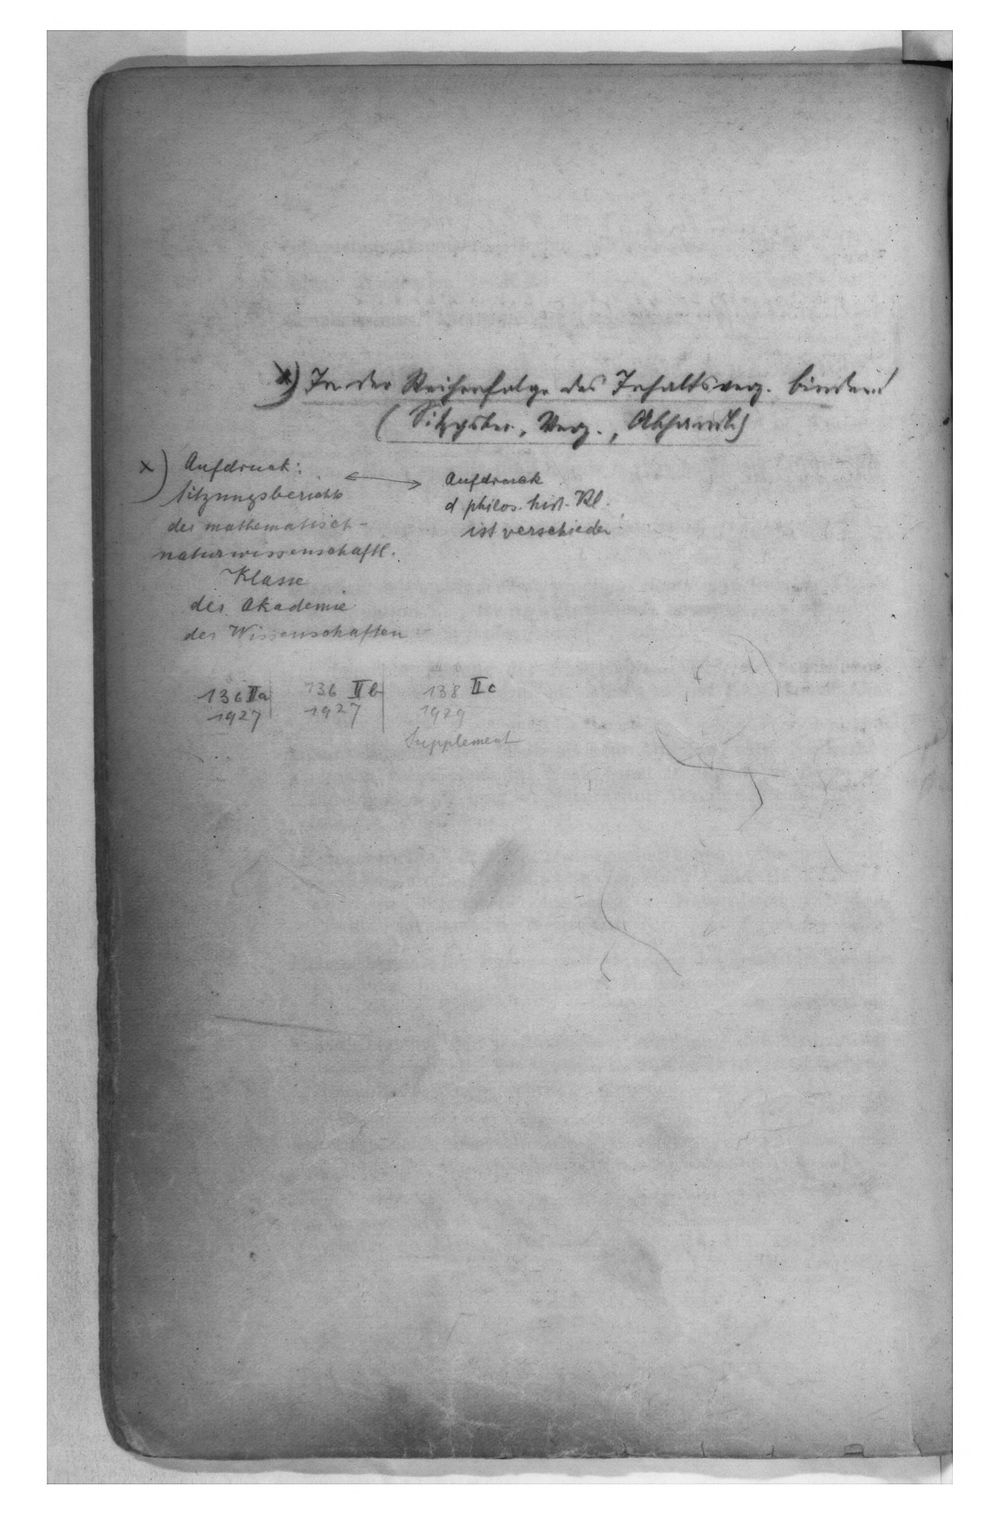 x) In der Reihenfolge des Inhaltsverz. binden!
(Sitzgsber., Verz., Abhandl.)
x) Aufdruck:
Sitzungsberichte
der mathematisch-
naturwissenschaftl.
Klasse
der Akademie
der Wissenschaften
Aufdruck
d philos. hist. Kl.
ist verschieden
136 IIa
1927
136 IIb
1927
138 IIc
1929
Supplement